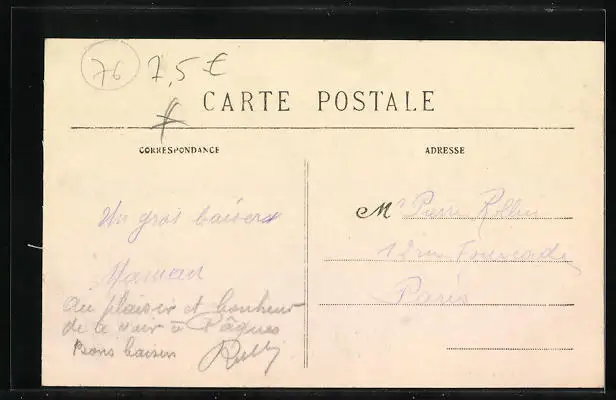 76 7,5 €
CARTE POSTALE
CORRESPONDANCE
ADRESSE
Un gros baisers
Maman
au plaisir et bonheur
de te voir à Pâques
Bons baisers
Mr Pierre
1 Fourcade
Paris